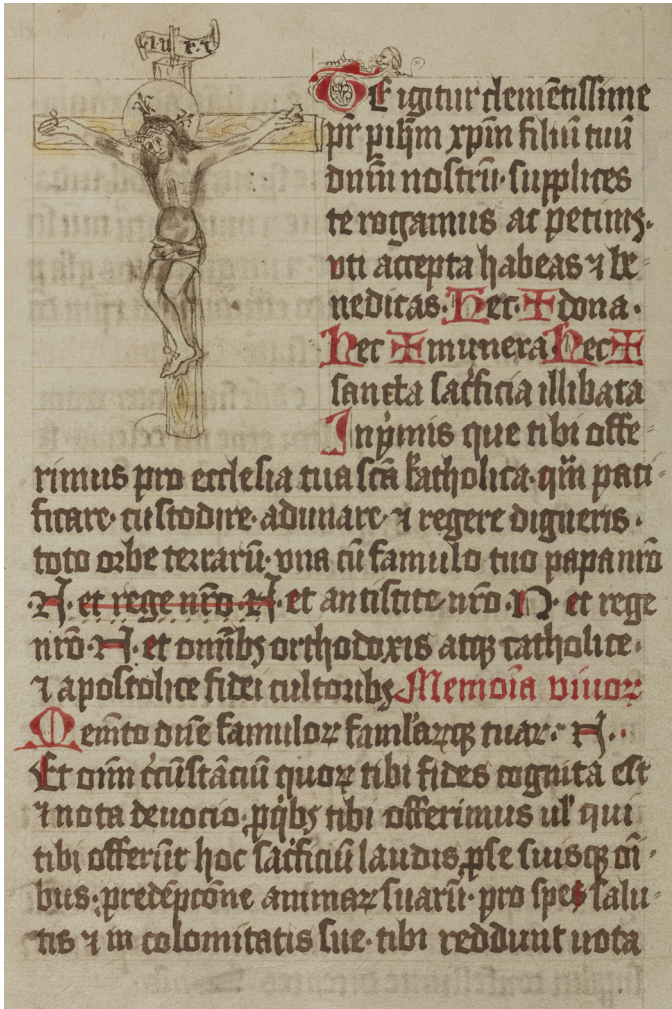 ·I·N·R·I·
Te igitur clemētissime
pr̄ p ih̄m xp̄m filiū tuū
dn̄m nostrū· supplices
te rogamus ac petimꝰ·
vti accepta habeas ⁊ be
nedicas· Hec ✠ dona·
Hec ✠ munera Hec ✠
sancta sac̓ficia illibata
In p̓mis que tibi offe-
rimus pro ecclesia tua sc̄a katholica· qm̄ paci-
ficare· custodire· adunare· ⁊ regere digneris·
toto orbe terrarū· vna cū famulo tuo papa nr̄o
·N· et rege nr̄o· N· et antistite nr̄o· N· et rege
nr̄o· N· et omībꝫ orthodoxis atqꝫ catholice·
⁊ apostolice fidei cultoribꝫ Memoīa viuoꝝ
Memēto dn̄e famuloꝝ famlaꝝqꝫ tuaꝝ· N··
Et omī c̓cūstāciū quoꝝ tibi fides cognita est
⁊ nota deuocio· ꝓ q̇bꝫ tibi offerimus ul̓ qui
tibi offerūt hoc sac̓ficiū laudis, ꝓ se suisqꝫ oī-
bus· ꝓ redēpcōne animaꝝ suarū· pro spei salu-
tis ⁊ in colomitatis sue· tibi reddunt uota